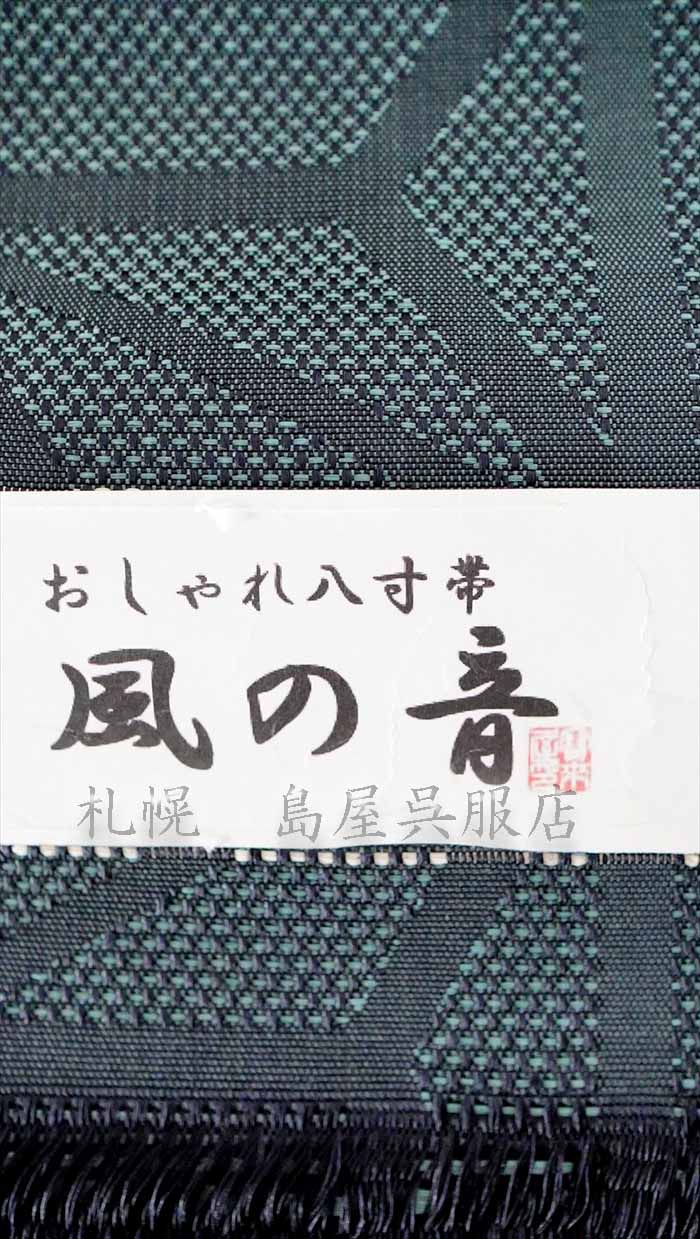 おしゃれ八寸帯
風の音
札幌　島屋呉服店